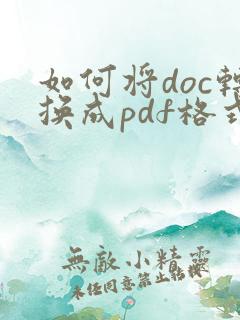 如何将doc转
换成pdf格式
無敵小精靈
未经同意禁止转载